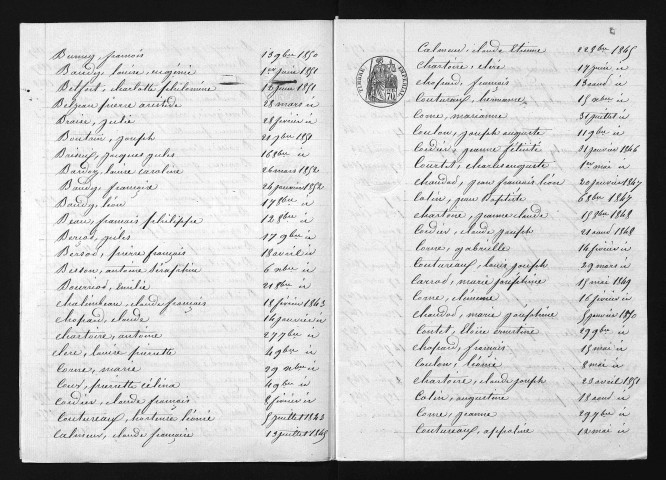 Burney, françois 13 9bre 1850
Baudy, louise, eugénie 1er juin 1851
Belfort, charlotte philomène 16 juin 1851
Beljean pierre aristide 28 mars id
Braise, julie 28 février id
Boutrin, joseph 21 9bre 1851
jacques jules 16 8bre id
Baudy, louise caroline 26 mars 1852
Baudy, françoise 24 janvier 1852
Baudy, léon 17 8bre id
Beau, françois philippe 12 8bre id
Beriod, jules 17 9bre id
Bersod, pierre françois 18 avril id
Besson, antoine séraphin 6 xbre id
Bourriod, émilie 21 8bre id
chalumeau, claude françois 18 février 1843
chopard, claude 14 janvier id
chartoire, antoine 27 7bre id
clerc, louise pierrette 4 9bre id
Corne, marie 29 8bre id
Coux, pierrette célina 4 9bre id
Cordier, claude françois 8 février id
Coutureaux, hortense léonie 5 juillet 1843
Calmeau, claude françoise 13 juillet 1845
Calmeau, claude Etienne 22 8bre 1845
Chartoire, claire 17 juin id
chopard, françois 13 aout id
Coutureaux, hermance 15 octobre id
Corne, marianne 31 juillet id
Coulon, joseph auguste 11 9bre id
Cordier, jeanne félicité 21 janvier 1846
Courtet, charles auguste 1er mai id
Chaudod, jean françois léon 20 janvier 1847
Colin, jean Baptiste 6 8bre 1847
Chartoire, jeanne claude 15 9bre 1848
Cordier, claude joseph 21 aout 1848
Corne, gabrielle 14 février id
Coutureaux, louis joseph 29 mars id
Carrod, marie joséphine 15 mai 1849
Corne, clémence 16 février id
Chaudod, marie joséphine 5 janvier 1850
Contet, claire Ernestine 29 9bre id
Chopard, françois 15 mai id
Coulon, léonie 8 mai id
Chartoire, claude joseph 23 avril 1851
Colin, augustine 18 aout id
Corne, jeanne 29 7bre id
Coutureaux, appoline 12 mai id
TIMBRE IMPERIAL